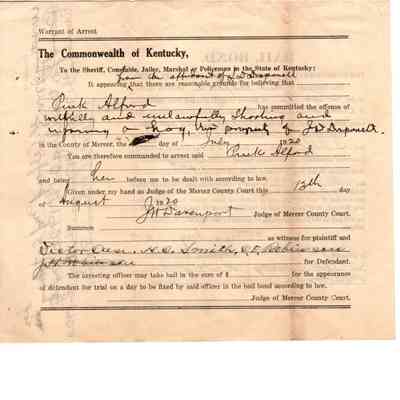 Warrant of Arrest
The Commonwealth of Kentucky,
To the Sheriff, Constable, Jailer, Marshal or Policeman in the State of Kentucky:
from the affidavit of
It appearing that there are reasonable grounds for believing that
Pink Alford has committed the offense of
wilfully and unlawfully Shooting and
injuring a hog, the property of
in the County of Mercer, the day of July 1920
You are therefore commanded to arrest said Pink Alford
and bring her before me to be dealt with according to law.
Given under my hand as Judge of the Mercer County Court this 12th day
of August 1920
J W Davenport Judge of Mercer County Court.
Summon
as witness for plaintiff and
H. C. Smith,
for Defendant.
The arresting officer may take bail in the sum of $ for the appearance
of defendant for trial on a day to be fixed by said officer in the bail bond according to law.
Judge of Mercer County Court.